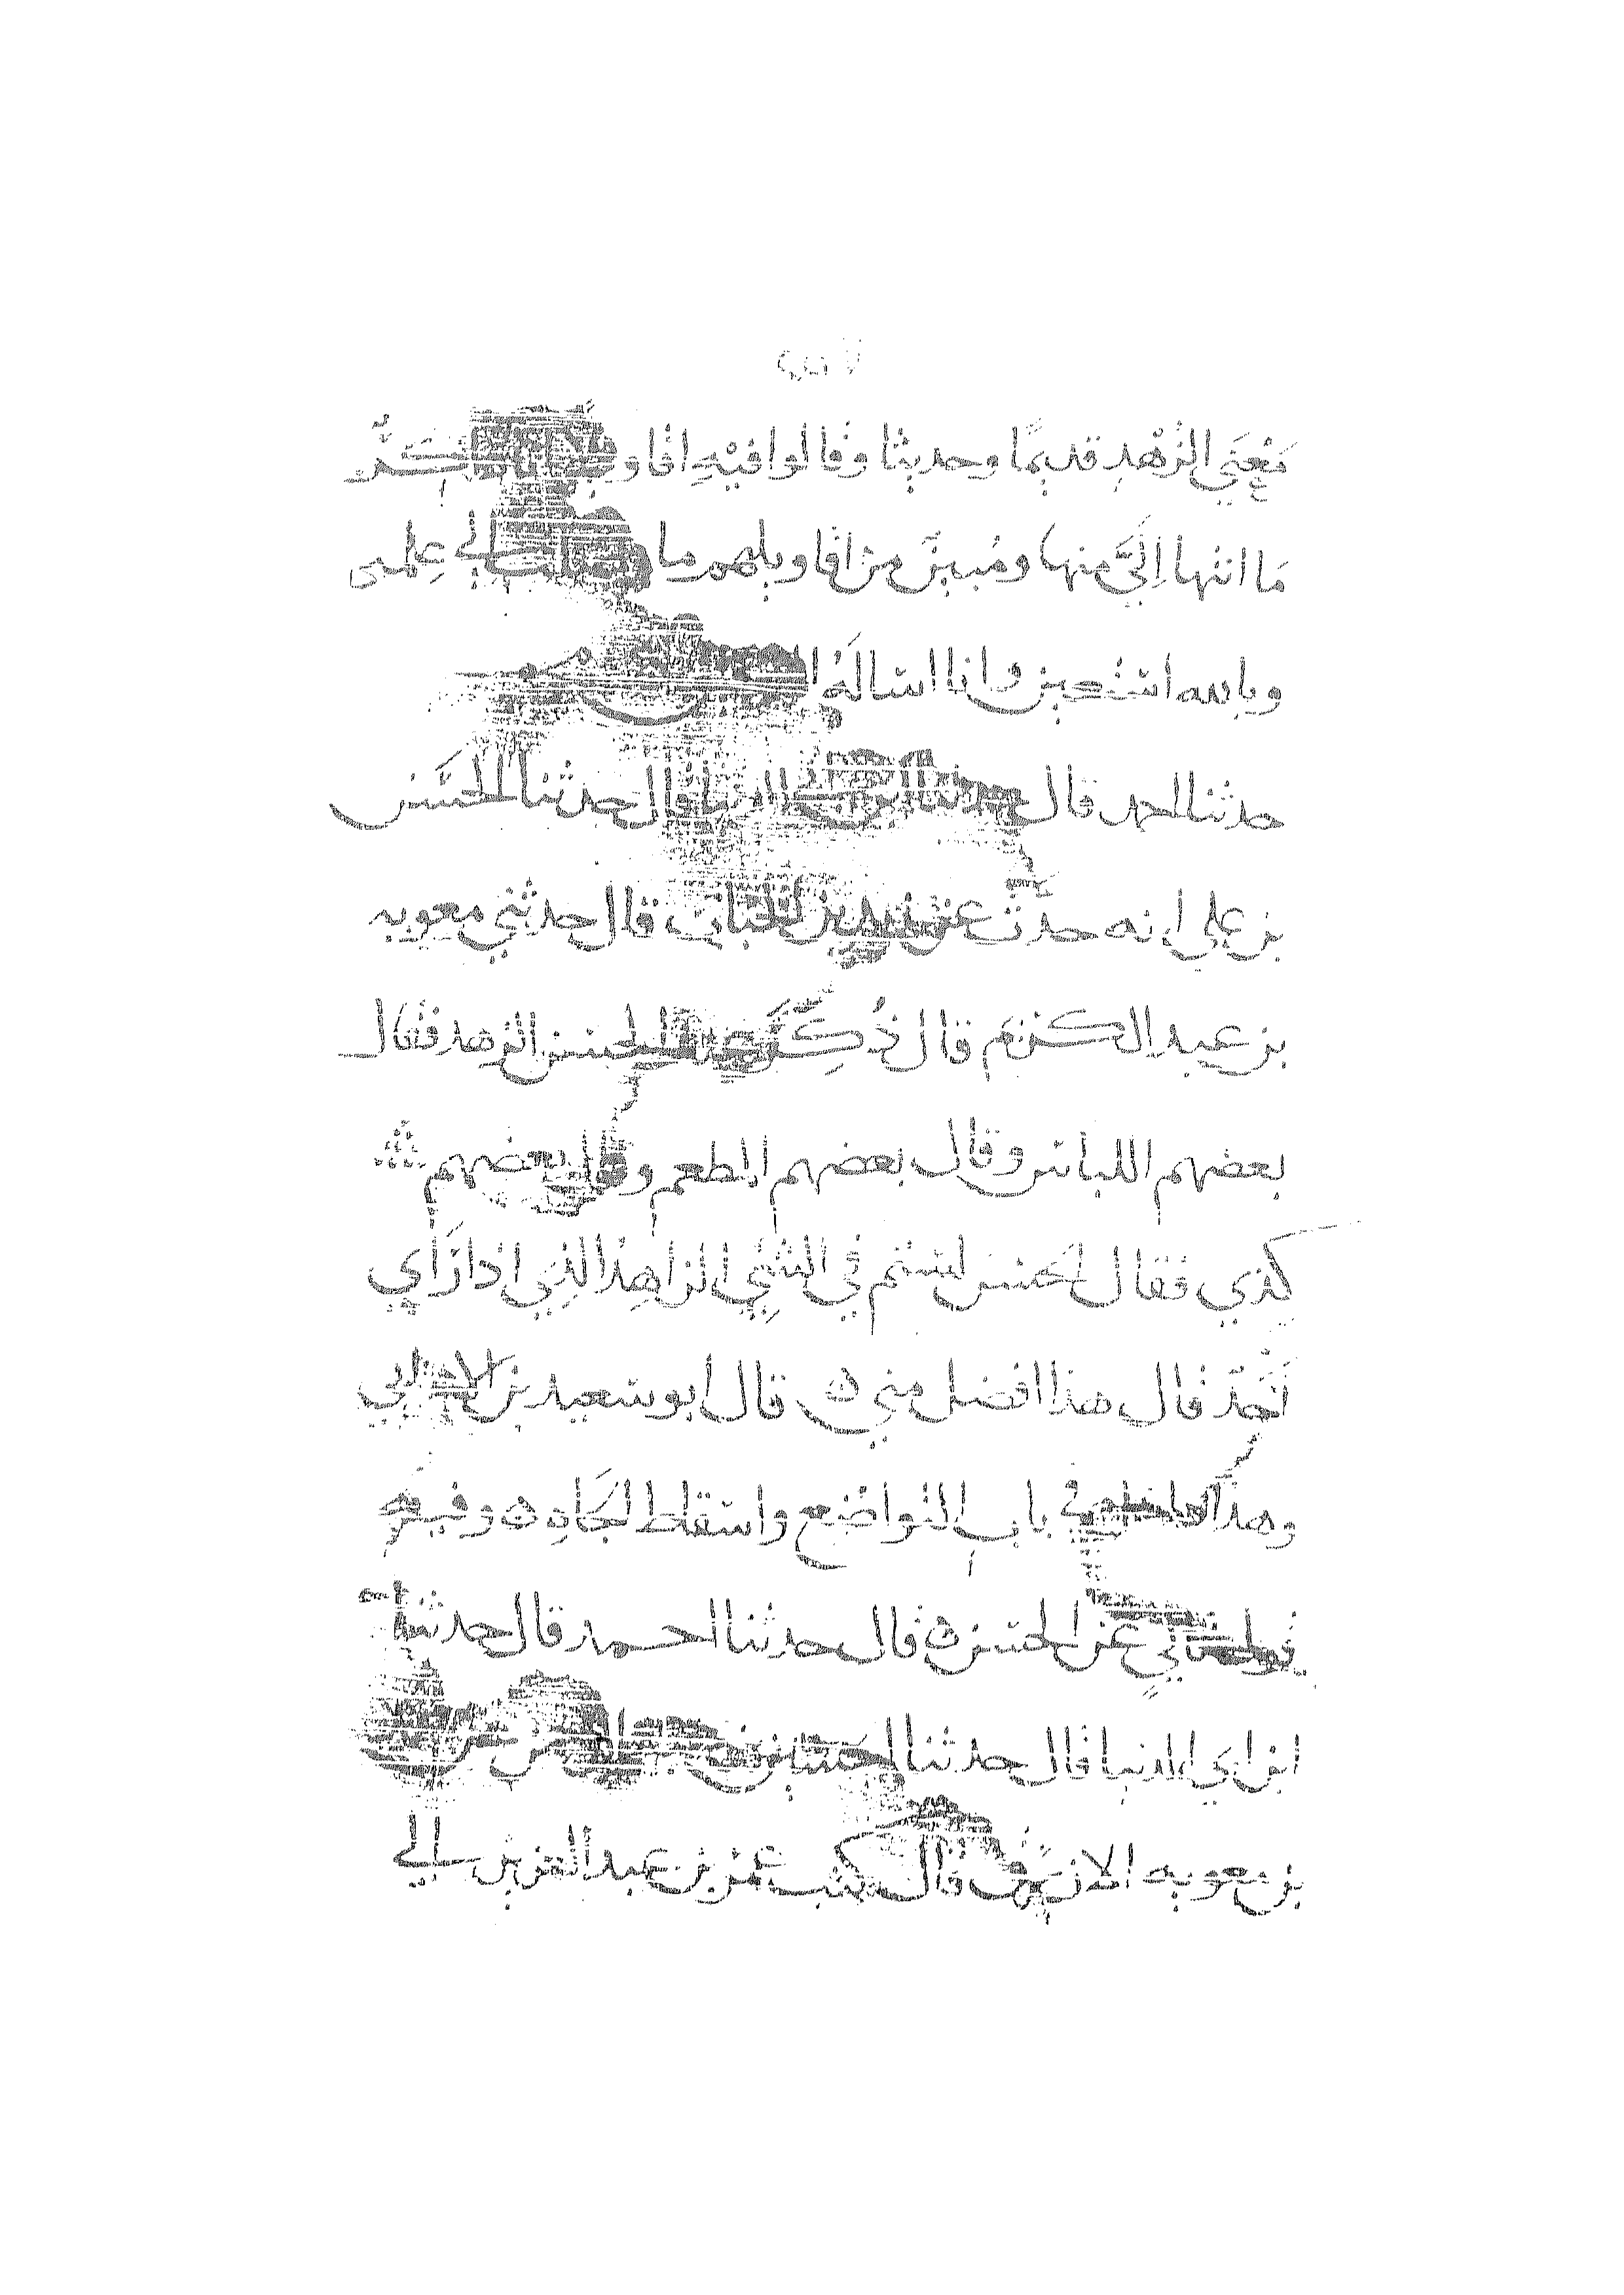 مَعْنَي الزُهْدِ قديمًا وحديثا وقالوا فيْهِ اقاو
مَا انتها اِلَيَّ منها ومُبيِّن من اقاويلهم ما الي عِلمى
وبالله استعين وانا اساله
حدثنا احمد قال حدثنا ابن ابي الدنيا قال حدثنا الحسَن
بن علي انه حدَّث عن زيد بن الحباب قال حدثني معويه
بن عبد الكريم قال ذُكِّر عند الحسن الزهد فقال
بعضهم اللباس وقال بعضهم المطعم وقال بعضهم
كذي فقال الحسن لستم في الشئِ الزاهِد الذي اذا رَاي
اَحدً قال هذا افضل مني ه قال ابو سعيد بن الاعرابي
وهذا داخل في بابِ التواضع واسقاط الجَاه ه وفيه
عن الحسن ه قال حدثنا احمد قال حدثنا
ابن ابي الدنيا قال حدثنا الحسين بن
بن معويه الازرق قال كتب عمر بن عبد العزيز الي